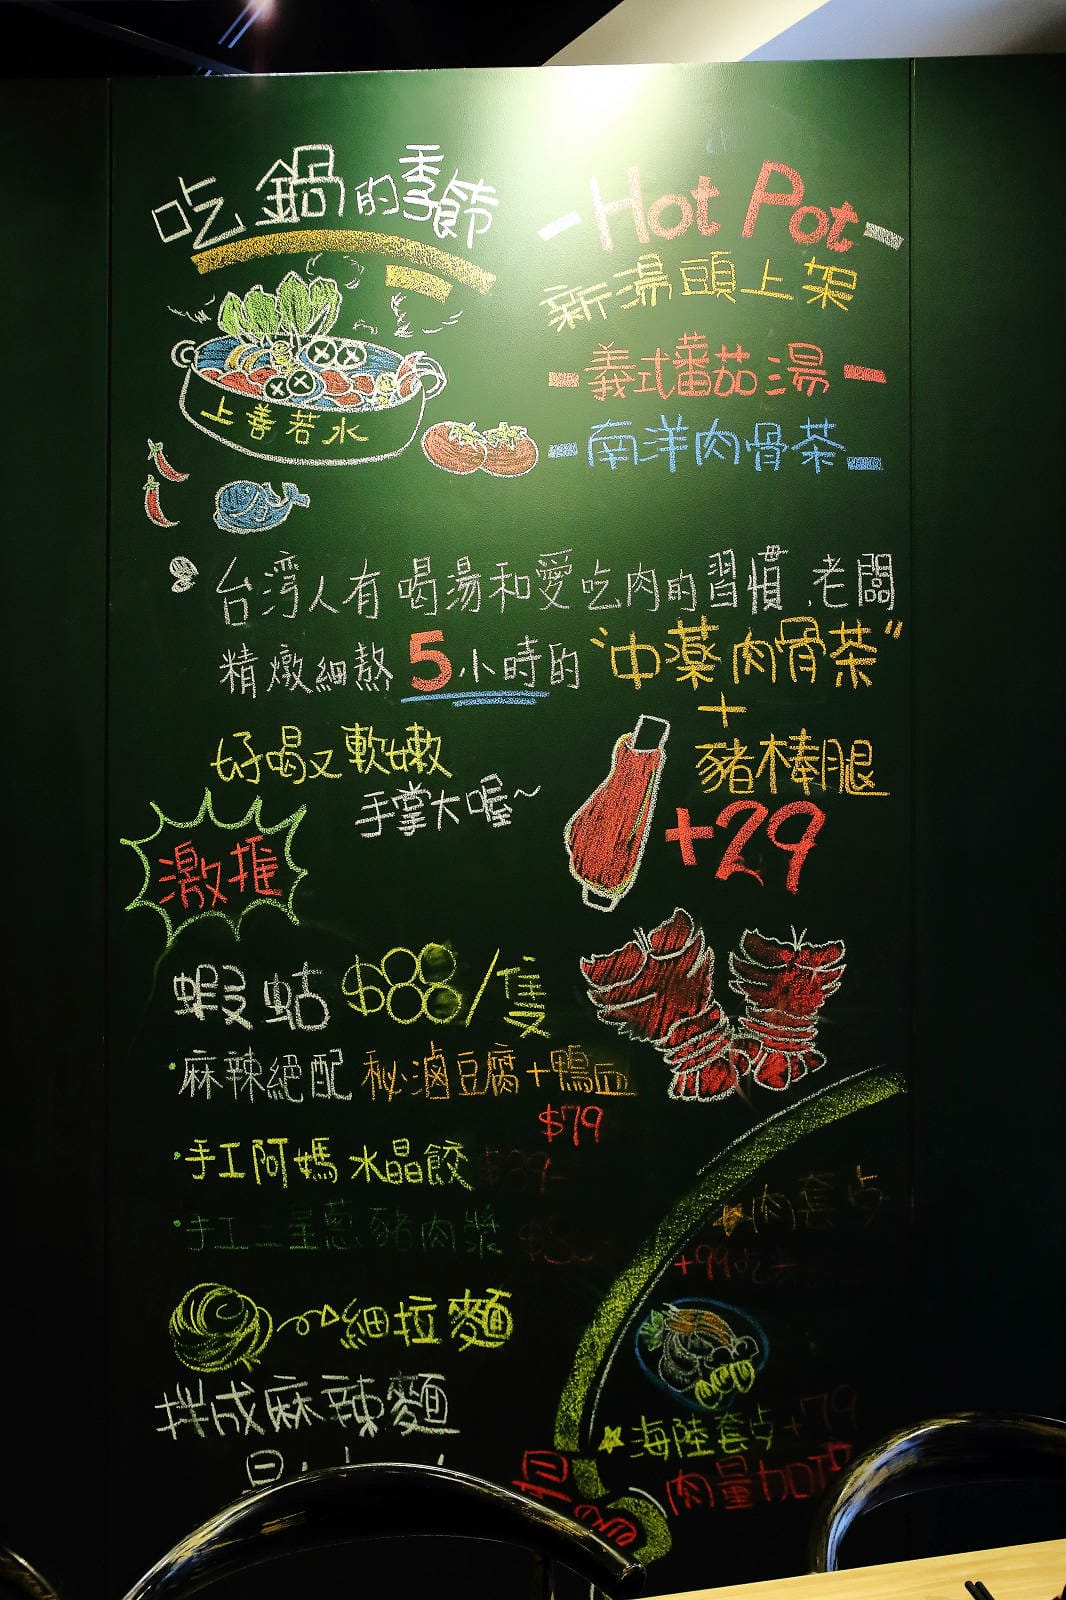 吃鍋的季節
-Hot Pot-
新湯頭上架
-義式蕃茄湯-
-南洋肉骨茶-
上善若水
台湾人有喝湯和愛吃肉的習慣.老闆
精燉細熬5小時的"中藥肉骨茶"
+
豬棒腿
+29
好喝又軟嫩
手掌大喔~
激推
蝦蛄 $88/隻
·麻辣絕配 秘滷豆腐+鴨血
$79
·手工阿媽水晶餃 $39-
·手工三星蔥豬肉漿
細拉麵
拌成麻辣麵
肉套点
+99
海陸套点+79
肉量加